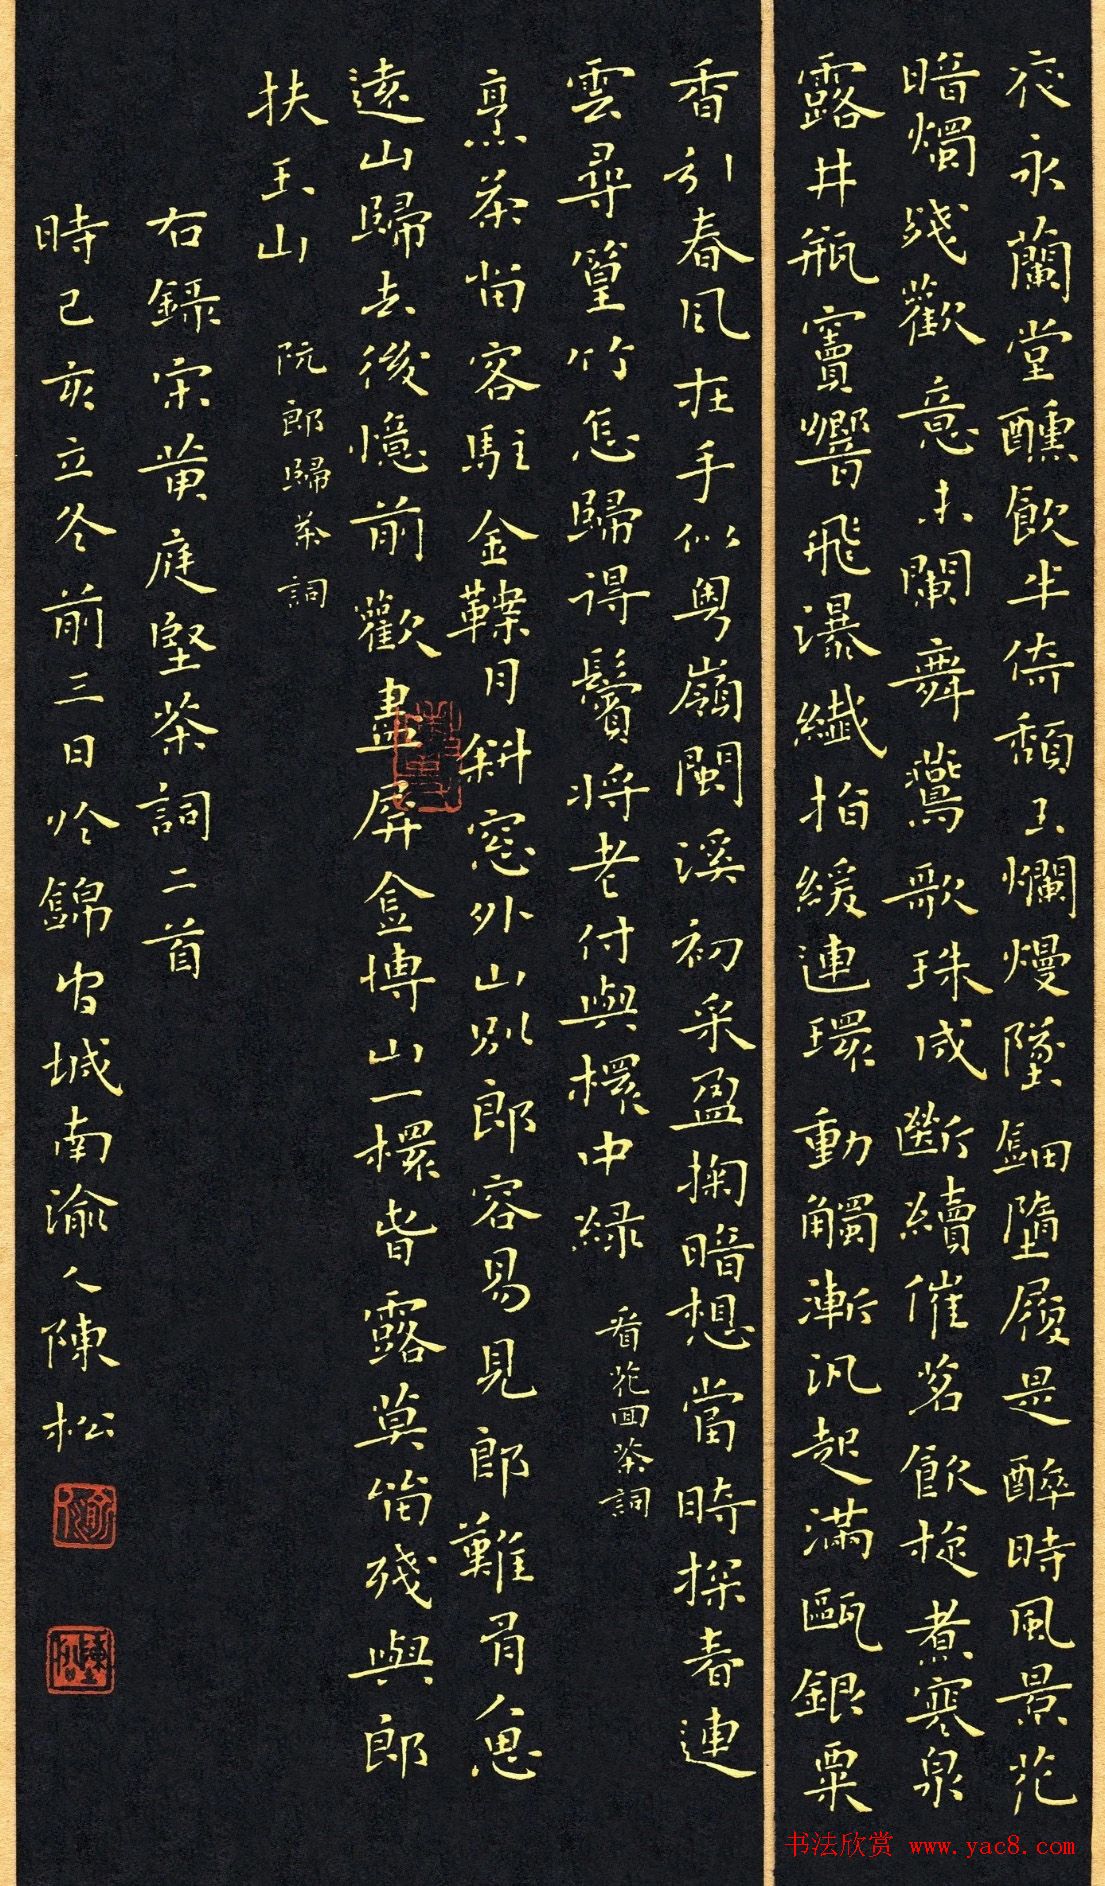 夜永蘭堂醺飲半倚頹玉爛熳墜鈿墮履是醉時風景花
暗燭殘歡意未闌舞燕歌珠成斷續催茗飲旋煮寒泉
露井瓶竇響飛瀑纖指緩連環動觸漸汎起滿甌銀粟
香引春風在手似粤嶺閩溪初采盈掬暗想當時探春連
雲尋篁竹怎歸得鬢將老付與杯中緑 看花囬茶詞
烹茶留客駐金鞍月斜窓外山別郎容易見郎難有人思
遠山歸去後憶前歡畫屏金博山一杯春露莫留殘與郎
扶玉山 阮郎歸茶詞
右錄宋黄庭堅茶詞二首
時己亥立冬前三日於錦官城南渝人陳松
书法欣赏 www.yac8.com